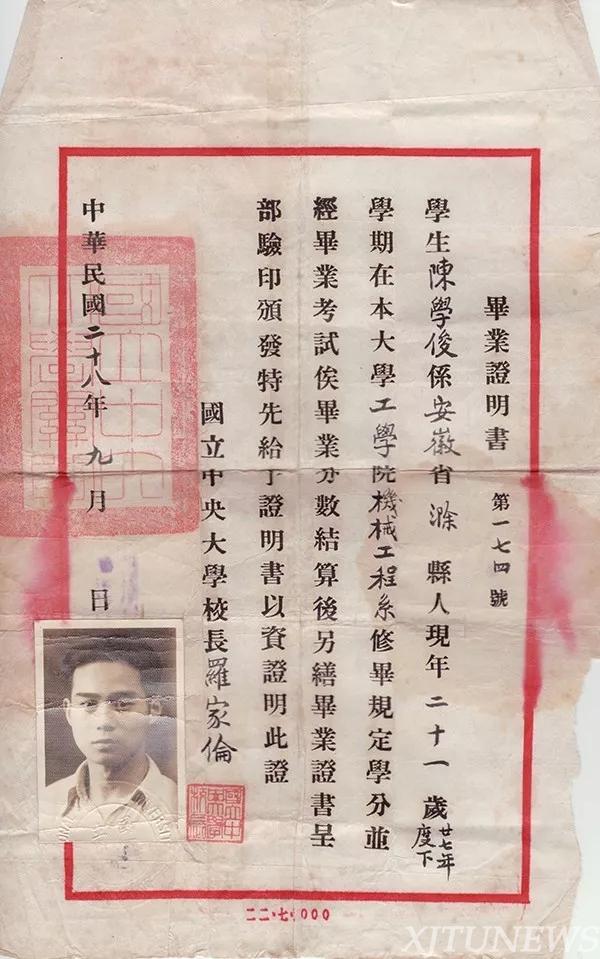 畢業證明書 第一七四號
學生陳學俊係安徽省滁縣人現年二十一歲廿七年度下
學期在本大學工學院機械工程系修畢規定學分並
經畢業考試俟畢業分數結算後另繕畢業證書呈
部驗印頒發特先給予證明書以資證明此證
國立中央大學校長羅家倫
中華民國二十八年九月 日
二二·七·1000
XJTUNEWS